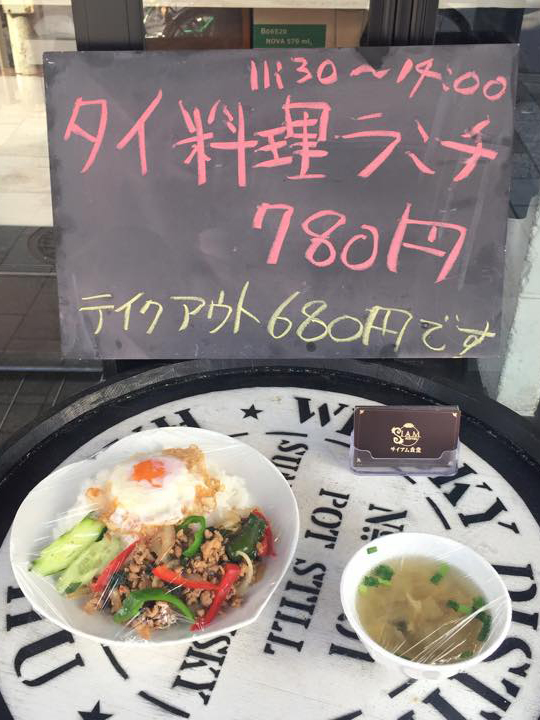 Boezo
NOVA 570 ml,
11:30〜14:00
タイ料理ランチ
780円
テイクアウト680円です
SIAM
サイアム食堂
WHISKY
DIST
POT STILL